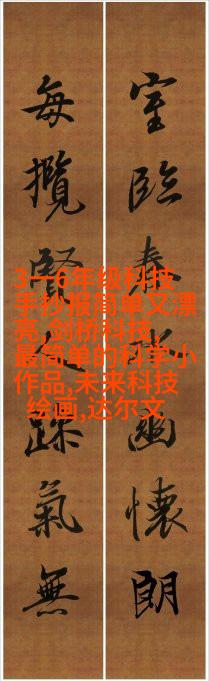 室臨春水幽懷朗
每攬賢躁氣無
3一6年级科技
手抄报简单又漂
亮,剑桥科技,
最简单的科学小
作品,未来科技
绘画,达尔文